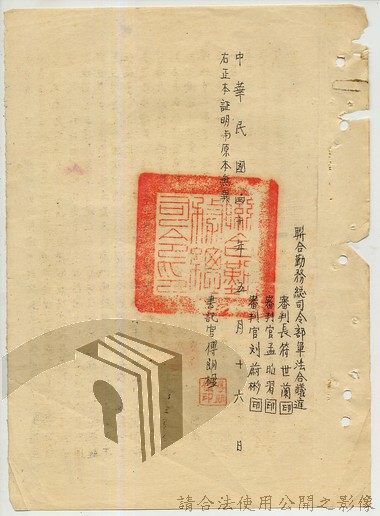 聯合勤務總司令部軍法合議庭
審判長 符世蘭 印
審判官 孟昭習 印
審判官 刘蔚彬 印
中華民國四十年五月十六日
右正本証明与原本無異
書記官傅朗樞
請合法使用公開之影像